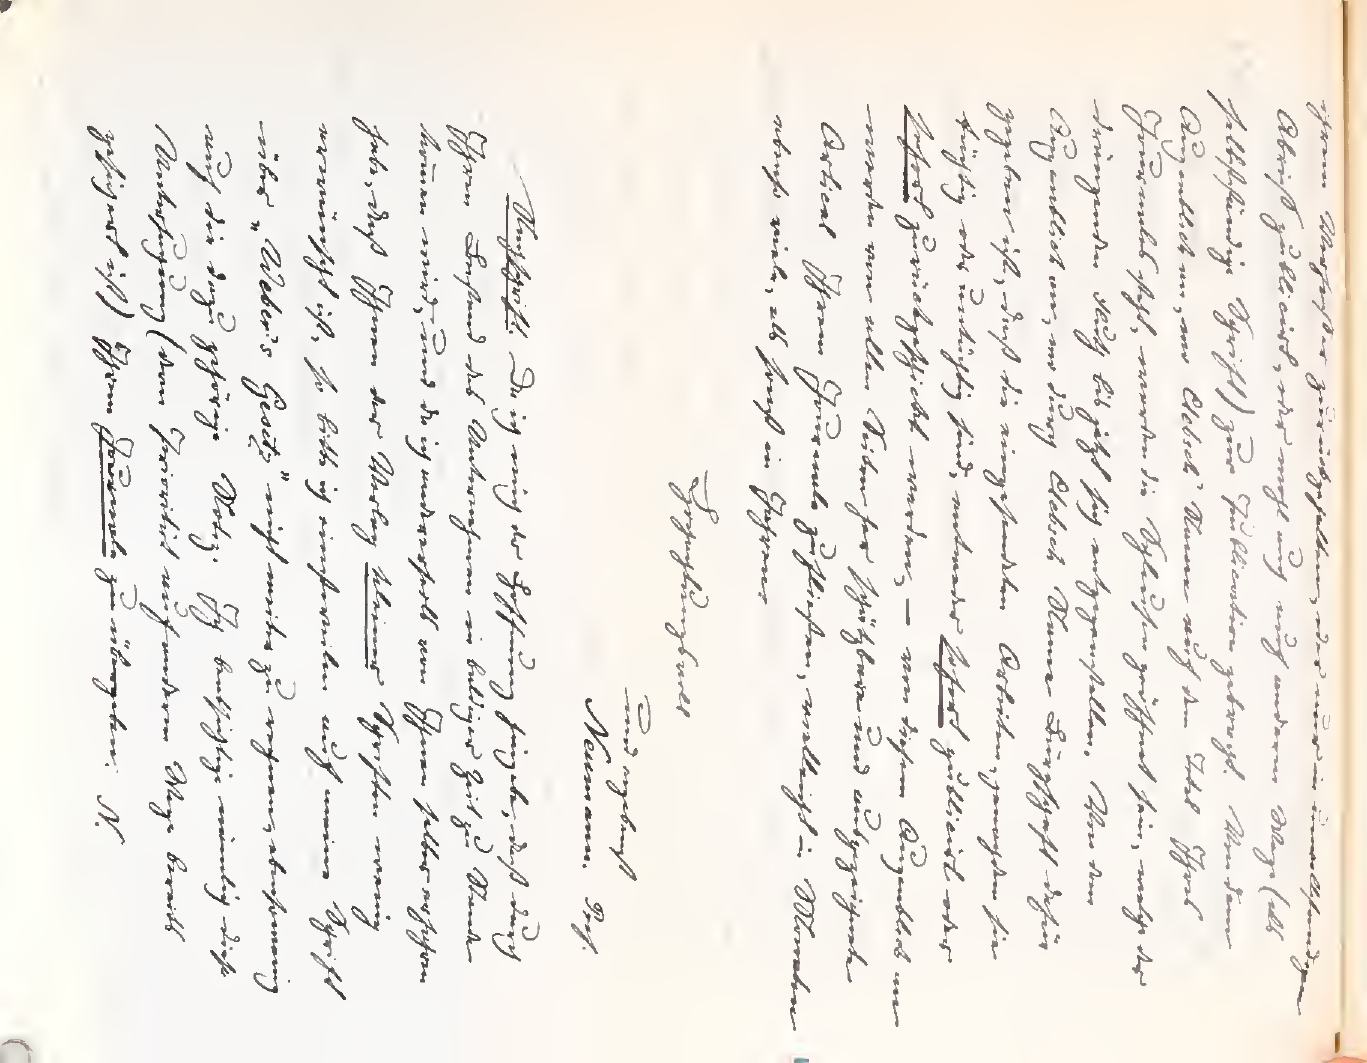 ihrem Verfasser zurückgestellt, oder nur in unvollständigem
Abriß publicirt, oder wohl auch auf anderem Wege (als
selbstständige Schrift) zur Publication gebracht. Von dem
Augenblick an, wo Clebsch' Name auf dem Titel Ihres
Journales steht, werden die Schleusen geöffnet sein, welche der
drängenden Fluth bis jetzt sich entgegenstellten. Von dem
Augenblick an, wo durch Clebsch Name Bürgschaft dafür
gegeben ist, daß die eingesandten Arbeiten, jenachdem sie
tüchtig oder untüchtig sind, entweder sofort publicirt oder
sofort zurückgeschickt werden, — von diesem Augenblick an
werden von allen Seiten her schätzbare und ausgezeichnete
Artikel Ihrem Journale zufließen, vielleicht in Monaten
ebenso viele, als sonst in Jahren.
Hochachtungsvoll
und ergebenst
Neumann. Prof.
Nachschrift. Da ich mich der Hoffnung hingebe, daß durch
Ihren Beistand das Unternehmen in baldiger Zeit zu Stande
kommen wird, und da ich andererseits von Ihnen selber ersehen
habe, daß Ihnen der Verlag kleiner Schriften wenig
erwünscht ist, so bitte ich einstweilen auf meine Schrift
über „Weber's Gesetz" nicht weiter zu rechnen, ebensowenig
auf die dazu gehörige Notiz. Ich beabsichtige nämlich diese
Untersuchung (deren Priorität auf anderem Wege bereits
gesichert ist) Ihrem Journale zu übergeben. N.